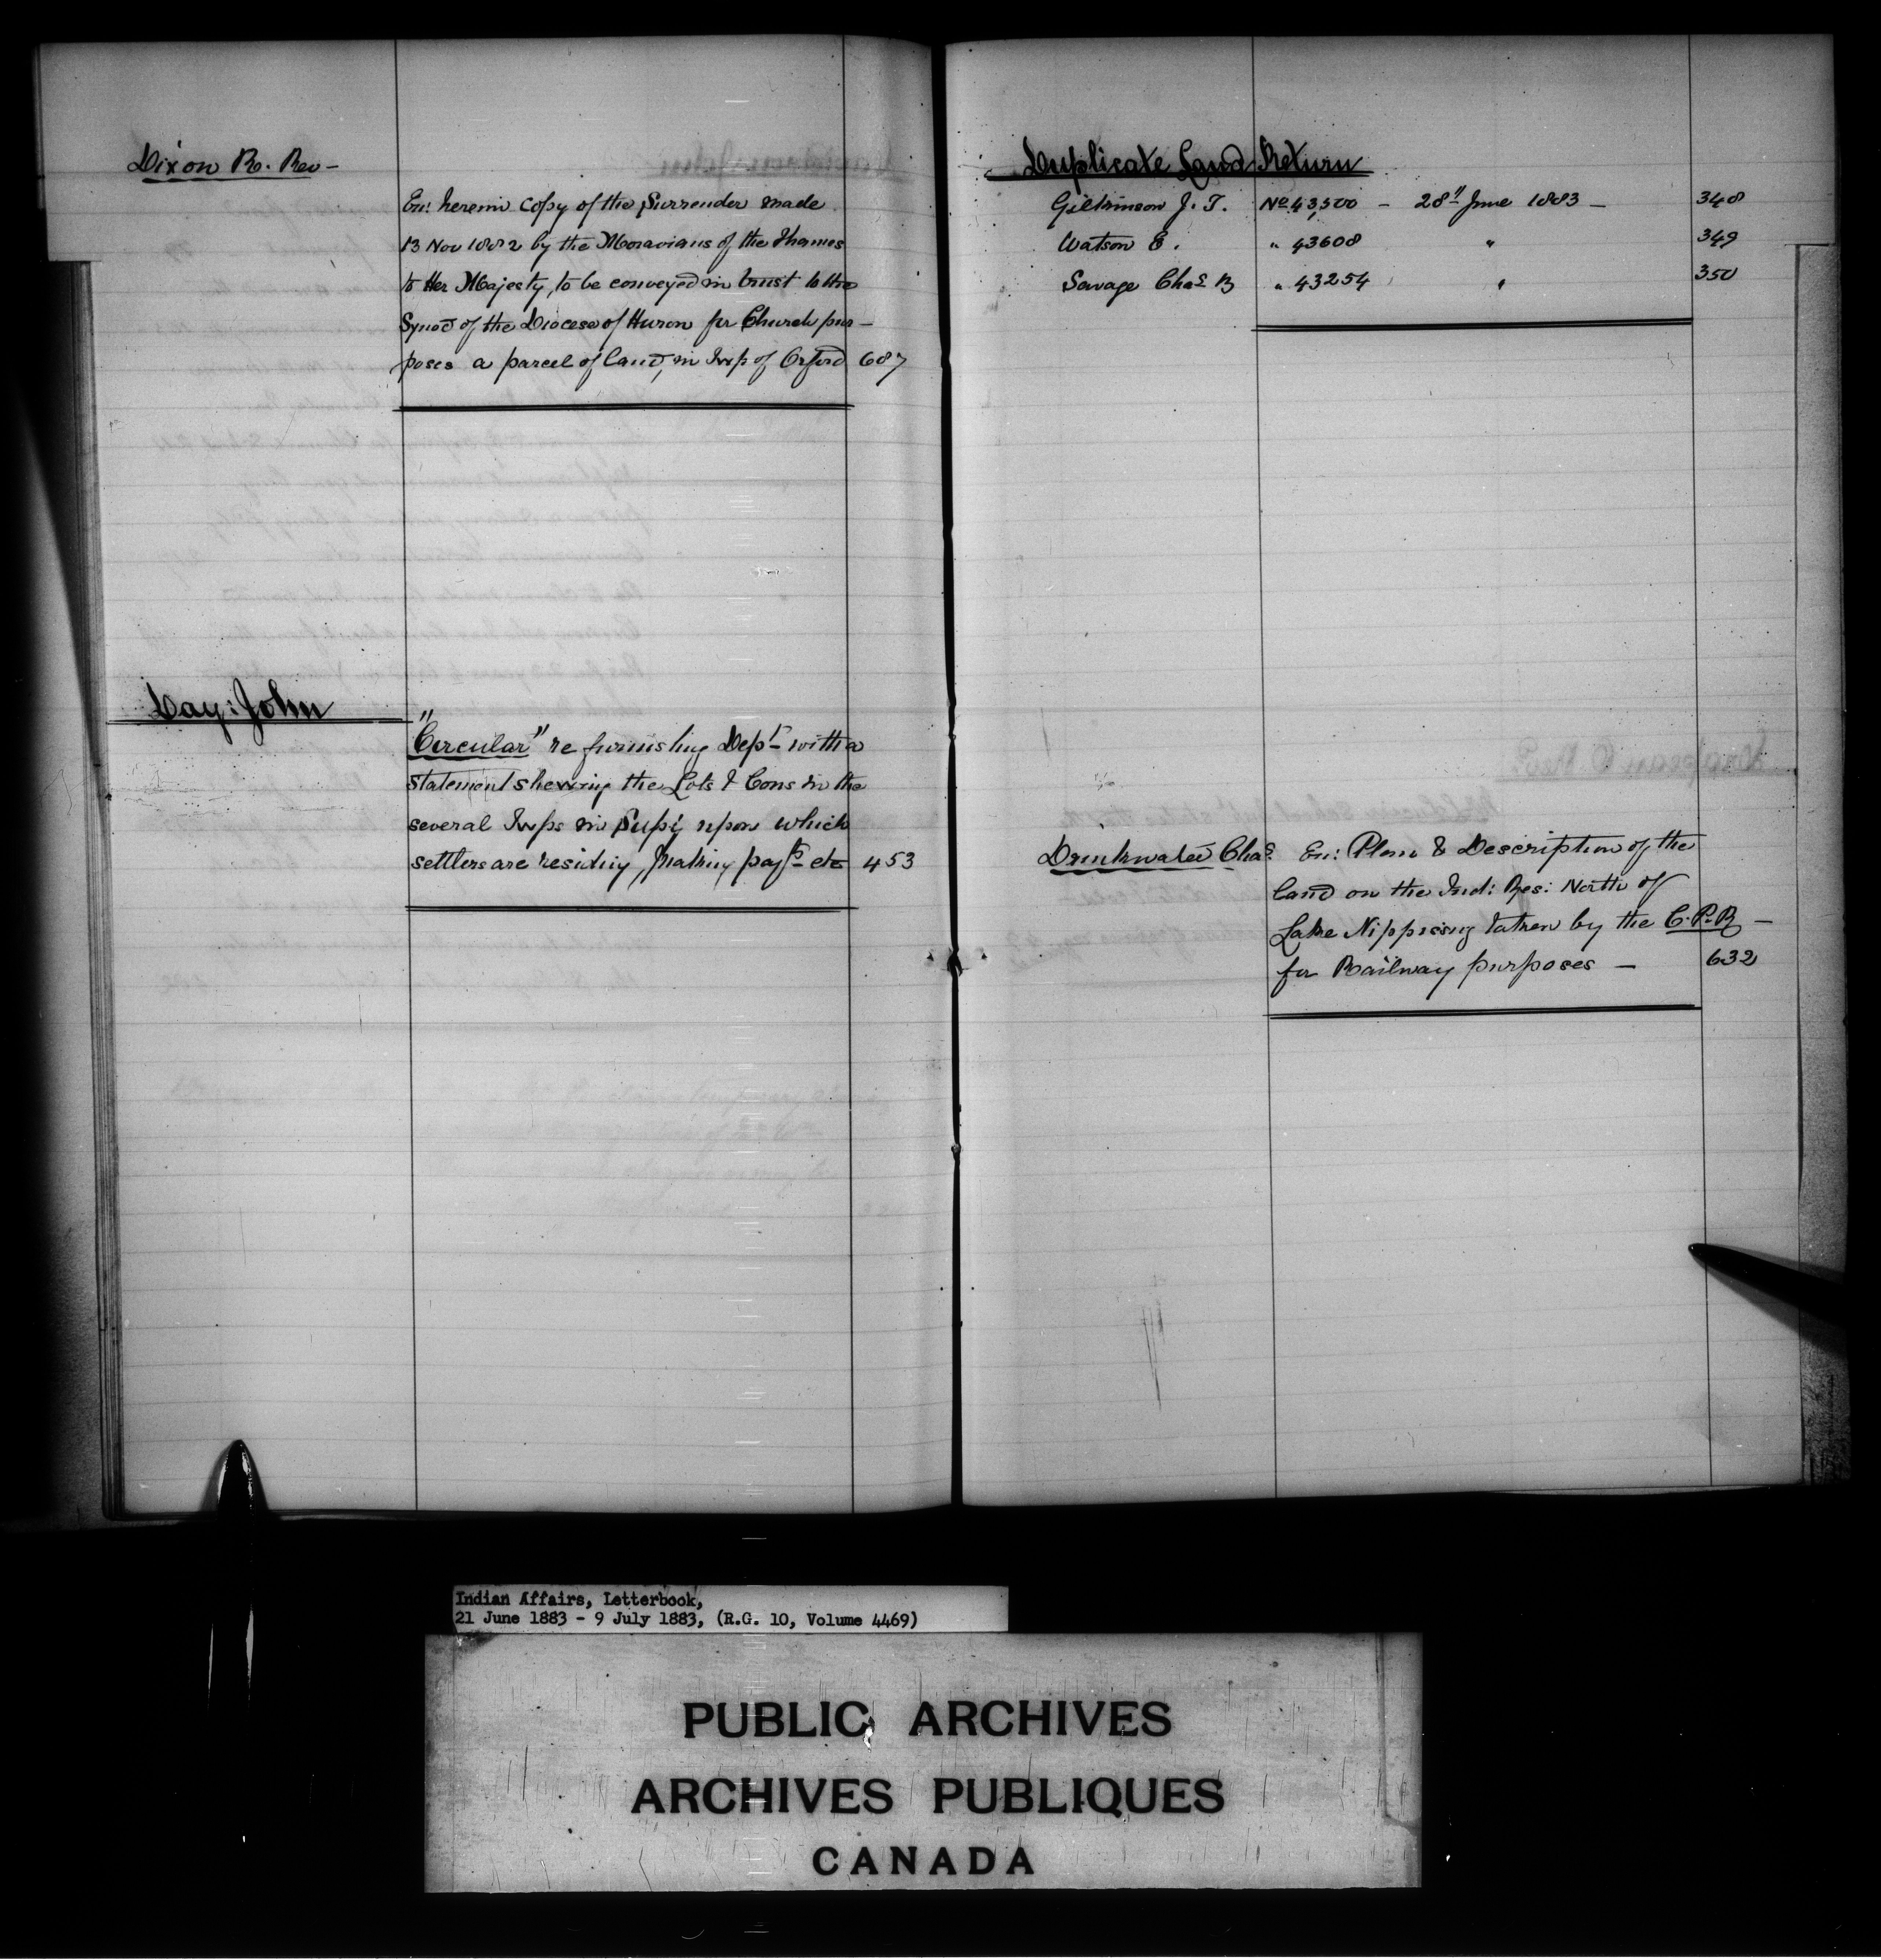 Dixon R. Rev –
En: herein copy of the Surrender made
13 Nov 1882 by the Moravians of the Thames
to Her Majesty, to be conveyed in trust to the
Synod of the Diocese of Huron for Church pur–
poses a parcel of land, in Twp of Orford 687
Day: John
"Circular" re furnishing Dept with a
statement shewing the Lots & Cons in the
several Twps in Supy upon which
settlers are residing, making payts etc 453
Duplicate Land Return
Gilkinson J. T. No 43,500 – 28th June 1883 – 348
Watson E. " 43608 " 349
Savage Chas B " 43254 " 350
Drinkwater Chas. En: Plan & Description of the
land on the Ind: Res: North of
Lake Nippissing taken by the C.P.R –
for Railway purposes – 632
Indian Affairs, Letterbook,
21 June 1883 - 9 July 1883, (R.G. 10, Volume 4469)
PUBLIC ARCHIVES
ARCHIVES PUBLIQUES
CANADA